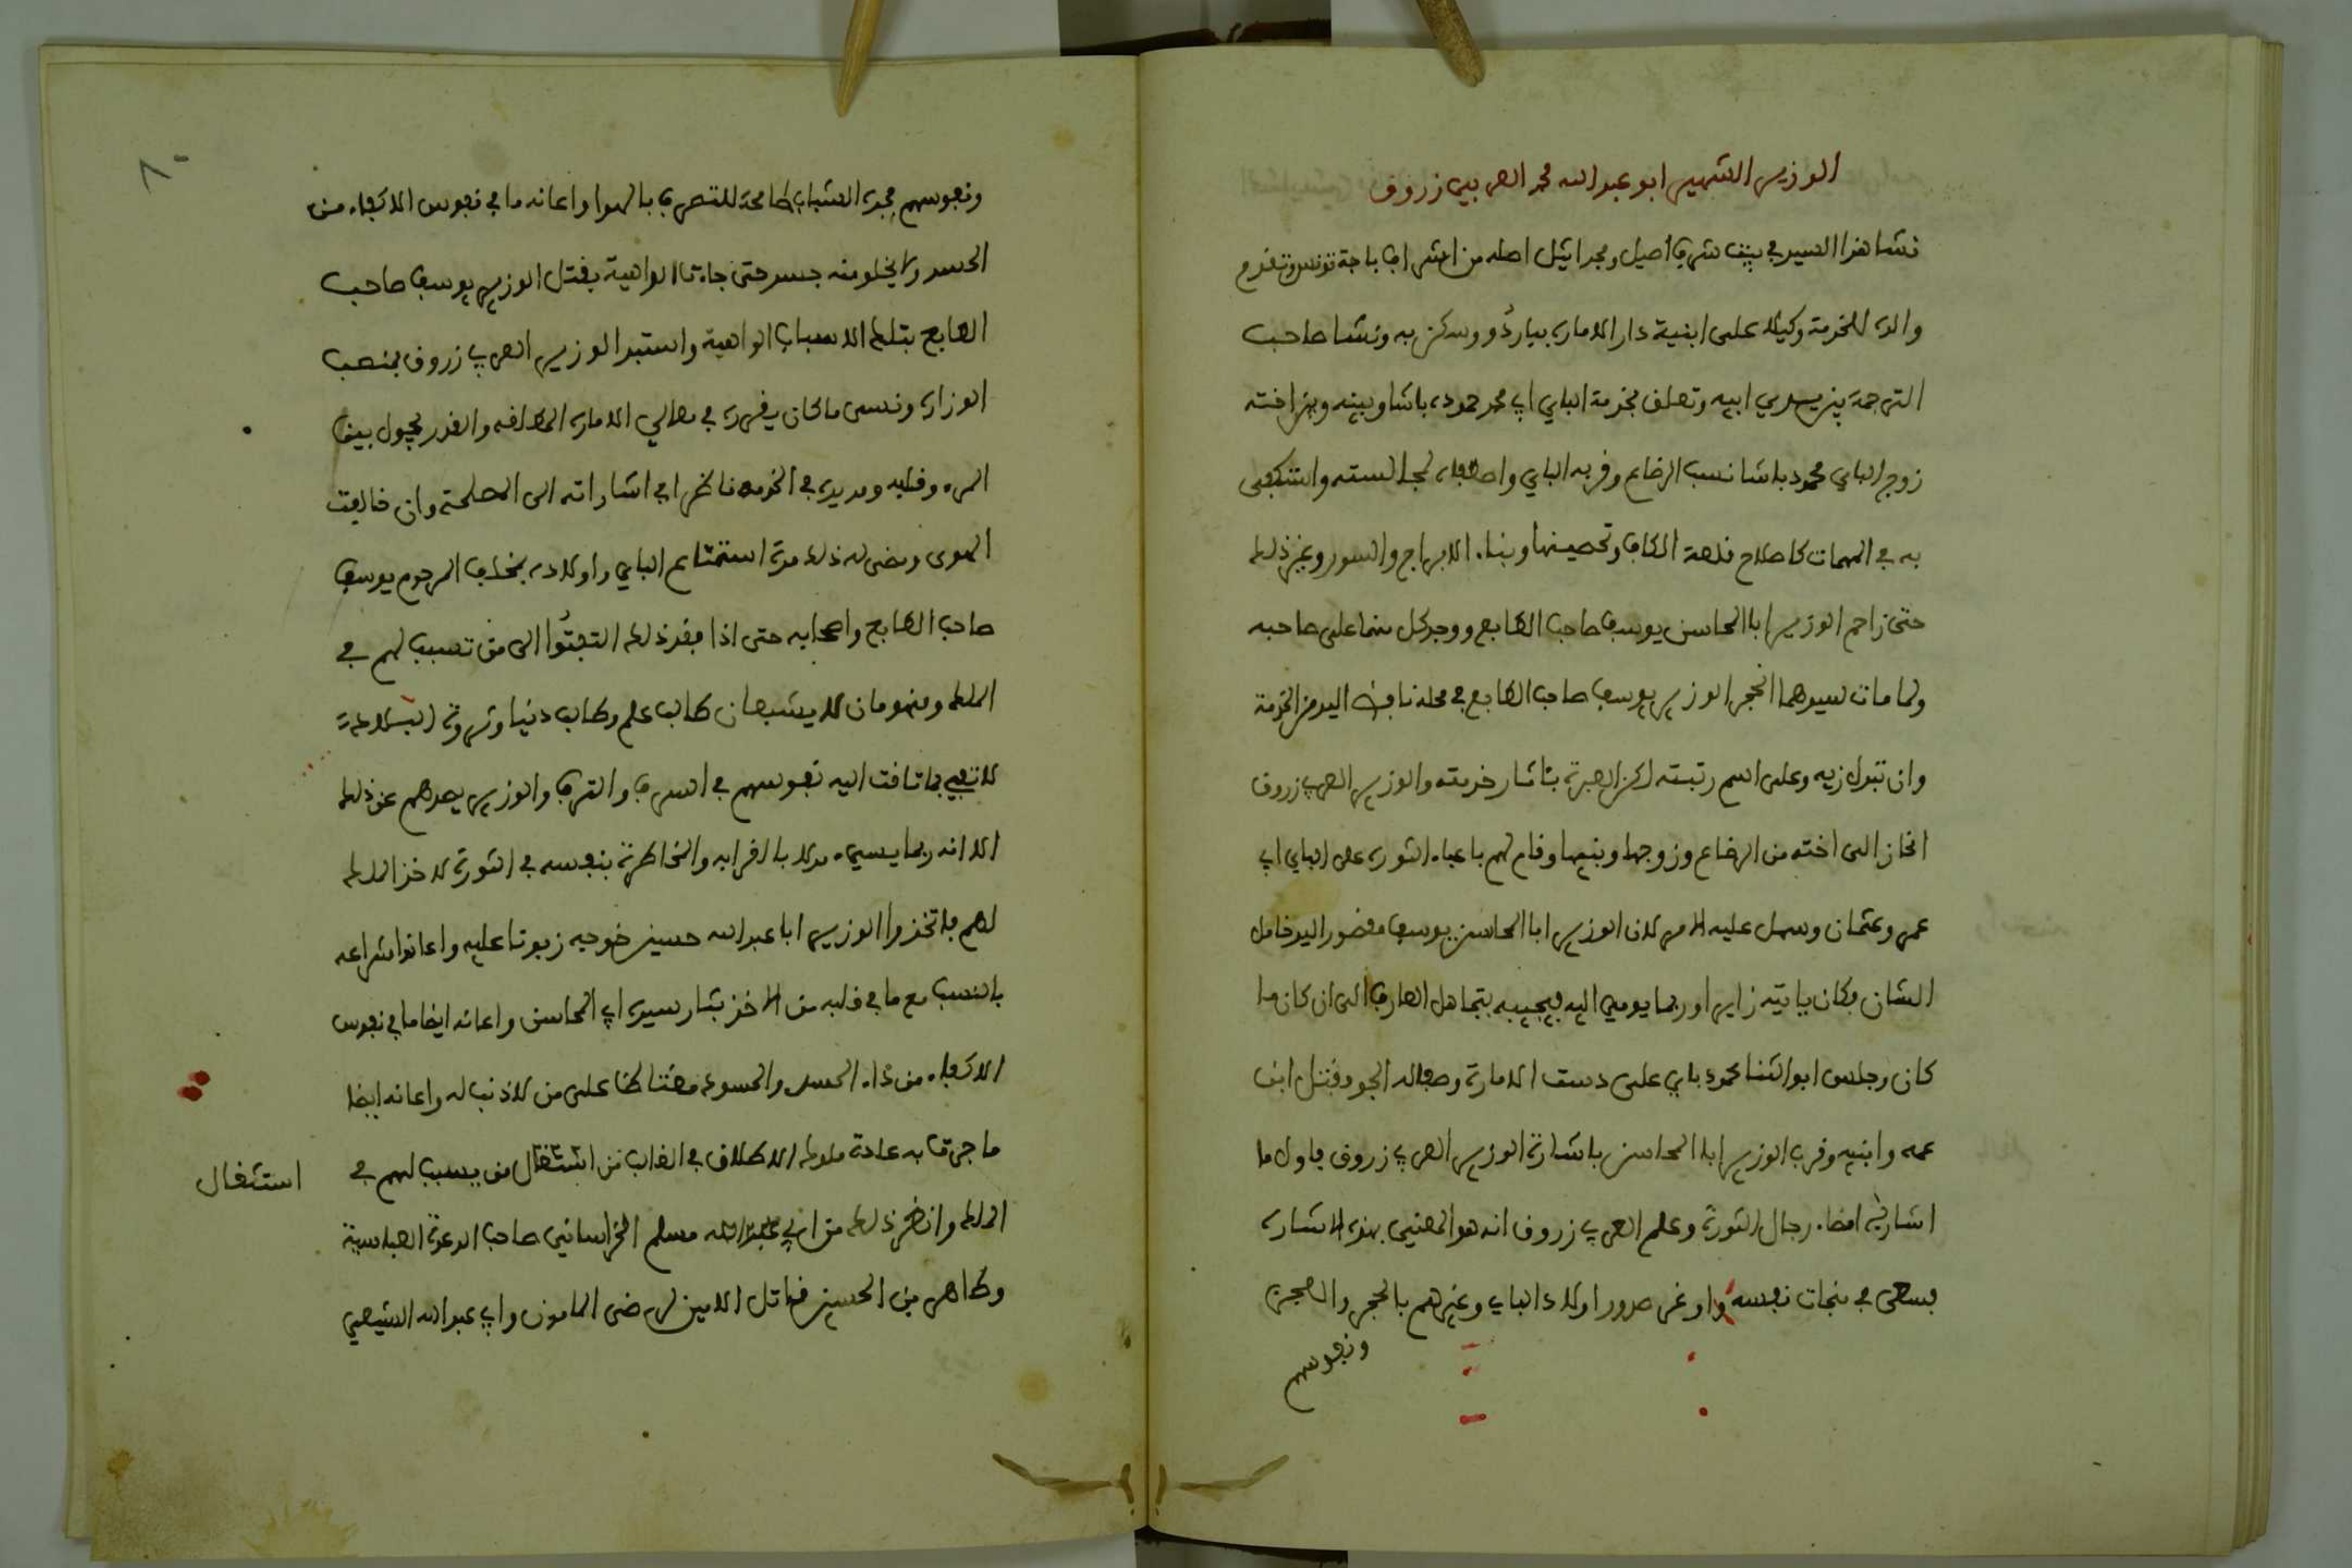 الوزير الشهير ابو عبد الله محمد العربي زروق
نشا هذا السيد في بيت شريف اصيل ومجد اثيل اصله من اشراف باجة تونس وتقدم
والده للخدمة وكيلا على ابنية دار الامارة بباردو وسكن به ونشا صاحب
الترجمة بين يدي ابيه وتعلق بخدمة الباي ابي محمد حمودة باشا وبينه وبين اخته
زوج الباي محمود باشا نسب الرضاع وقربه الباي واصطفاه لمجالسته واستكفى
به في المهمات كاصلاح قلعة الكاف وتحصينها وبناء الابراج والسور وغير ذلك
حتى زاحم الوزير ابا المحاسن يوسف صاحب الطابع ووجد كل منهما على صاحبه
ولما مات سيدهما انحجر الوزير يوسف صاحب الطابع في محله نافض اليد من الخدمة
وان تبدل زيه وعلى اسم رتبته لكن العبرة بئاثار خدمته والوزير العربي زروق
انحاز الى اخته من الرضاع وزوجها وبنيها وقام لهم باعباء الثورة على الباي ابي
عمر وعثمان وسهل عليه الامر لان الوزير ابا المحاسن يوسف مقصور اليد خامل
الشان وكان ياتيه زايرا وربما يومي اليه فيجيبه بتجاهل العارف الى ان كان ما
كان وجلس ابو الثنا محمود باي على دست الامارة وصفا له الجو وقتل ابن
عمه وابنيه وقرب الوزير ابا المحاسن باشارة الوزير العربي زروق فاول ما
اشار به امضاء رجال الثورة وعلم العربي زروق انه هو المعني بهذه الاشارة
فسعى في نجات نفسه واوغر صدور اولاد الباي وغيرهم بالحجر والعجز
ونفوسهم
٨٠
ونفوسهم في جدة الشباب طامحة للتصرف بالهوا واعانه ما في نفوس الاكفاء من
الحسد ولا يخلو منه جسد حتى جاءتا الداهية بقتل الوزير يوسف صاحب
الطابع بتلك الاسباب الواهية واستبد الوزير العربي زروق بمنصب
الوزارة ونسى ما كان يقرره في معالي الامارة المطلقة والقدر يحول بين
المرء وقلبه ومد يده في الخدمة ناظرا في اشاراته الى المصلحة وان خالفت
الهوى ومضى له ذلك مدة استمتاع الباي واولاده بمخلف المرحوم يوسف
صاحب الطابع واصحابه حتى اذا فقد ذلك التفتوا الى من تسبب لهم في
الملك ومنهومان لا يشبعان طالب علم وطالب دنيا وثروة البلاد
لا تفي بما تاقت اليه نفوسهم في السرف والترف والوزير يصدهم عن ذلك
الا انه ربما يسيء مدلا بالقرابة والمخاطرة بنفسه في الثورة لاخذ الملك
لهم فاتخذوا الوزير ابا عبد الله حسين خوجه زبونا عليه واعانوا شراعه
بالنسب مع ما في قلبه من الاخذ بثار سيده ابي المحاسن واعانه ايضا ما في نفوس
الاكفاء من داء الحسد والحسود مغتاظا على من لا ذنب له واعانه ايضا
ما جرت به عادة ملوك الاطلاق في الغالب من استثقال من يسبب لهم في
استثقال
الملك وانظر ذلك من ابي مسلم الخراساني صاحب الدعوة العباسية
وطاهر بن الحسين قاتل الامين لرضى المامون وابي عبد الله الشيعي